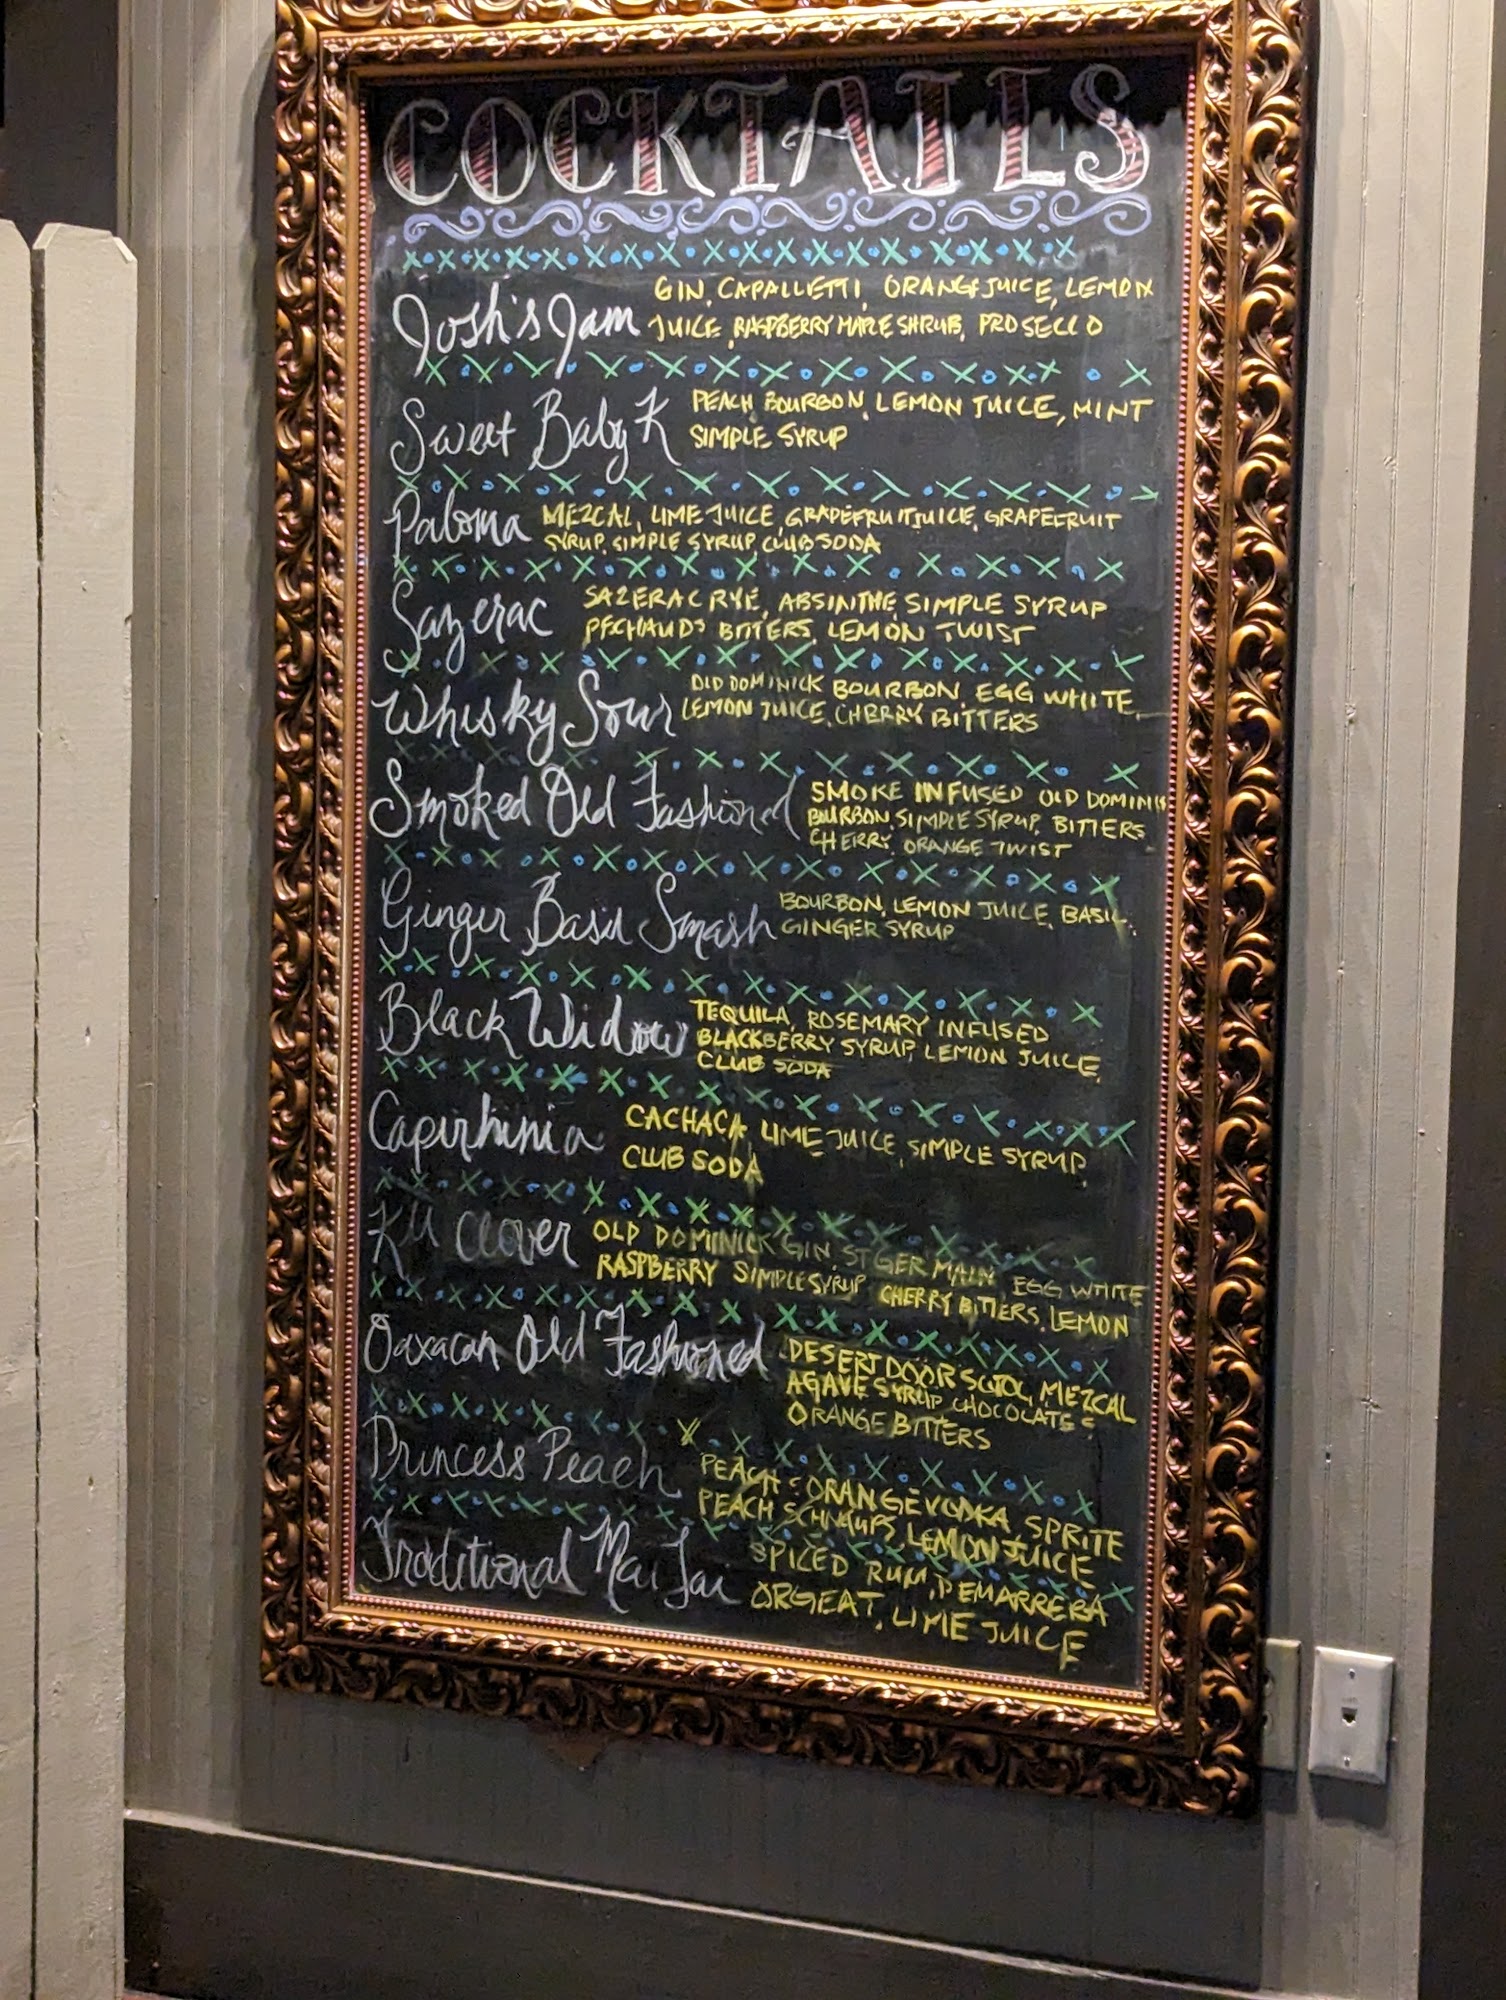 COCKTAILS
Josh's Jam
GIN, CAPALLETTI, ORANGE JUICE, LEMON
JUICE, RASPBERRY MAPLE SHRUB, PROSECCO
Sweet Baby K
PEACH BOURBON, LEMON JUICE, MINT
SIMPLE SYRUP
Paloma
MEZCAL, LIME JUICE, GRAPEFRUIT JUICE, GRAPEFRUIT
SYRUP, SIMPLE SYRUP, CLUB SODA
Sazerac
SAZERAC RYE, ABSINTHE, SIMPLE SYRUP
PECHAUDS BITTERS, LEMON TWIST
Whisky Sour
OLD DOMINICK BOURBON, EGG WHITE,
LEMON JUICE, CHERRY BITTERS
Smoked Old Fashioned
SMOKE INFUSED OLD DOMINICK
BOURBON, SIMPLE SYRUP, BITTERS
CHERRY, ORANGE TWIST
Ginger Basil Smash
BOURBON, LEMON JUICE, BASIL,
GINGER SYRUP
Black Widow
TEQUILA, ROSEMARY INFUSED
BLACKBERRY SYRUP, LEMON JUICE,
CLUB SODA
Capirhinia
CACHACA, LIME JUICE, SIMPLE SYRUP,
CLUB SODA
Clover
OLD DOMINICK GIN, ST GERMAIN, EGG WHITE
RASPBERRY SIMPLE SYRUP, CHERRY BITTERS, LEMON
Oaxacan Old Fashioned
DESERT DOOR SOTOL, MEZCAL
AGAVE SYRUP, CHOCOLATE &
ORANGE BITTERS
Princess Peach
PEACH & ORANGE VODKA, SPRITE
PEACH SCHNAPPS, LEMON JUICE
Traditional Mai Tai
SPICED RUM, DEMARRERA
ORGEAT, LIME JUICE